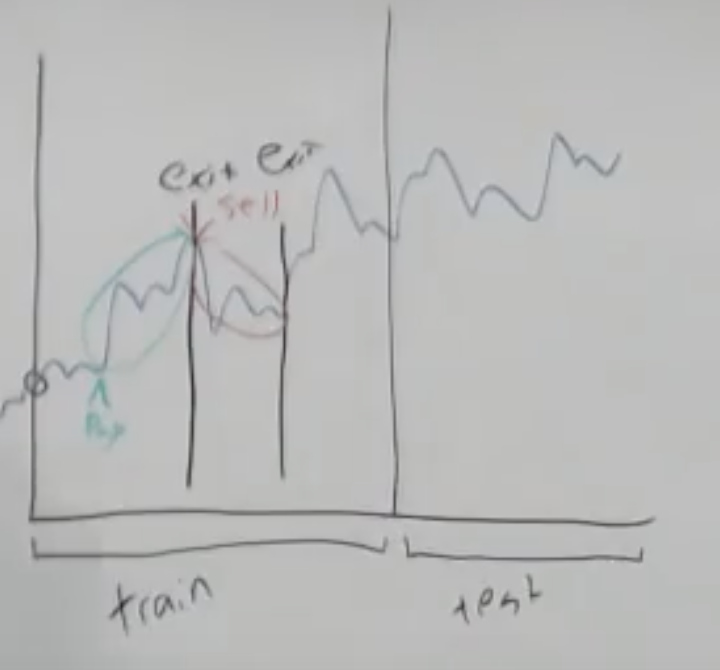 exit exit
sell
Buy
train
test